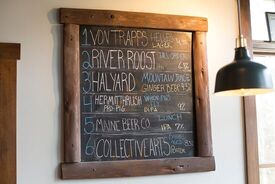 1 VON TRAPPS HELLES
2 RIVER ROOST
3 HALYARD MOUNTAIN
GINGER BEER
4 HERMIT THRUSH
5 MAINE BEER CO. LUNCH
IPA 7%
6 COLLECTIVE ARTS